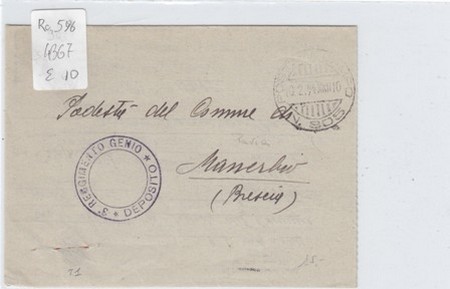 Ra, 596
1867
£ 10
Podestà del Comune di
Manerbio
(Brescia)
3° REGGIMENTO GENIO * DEPOSITO *
T1
15.-